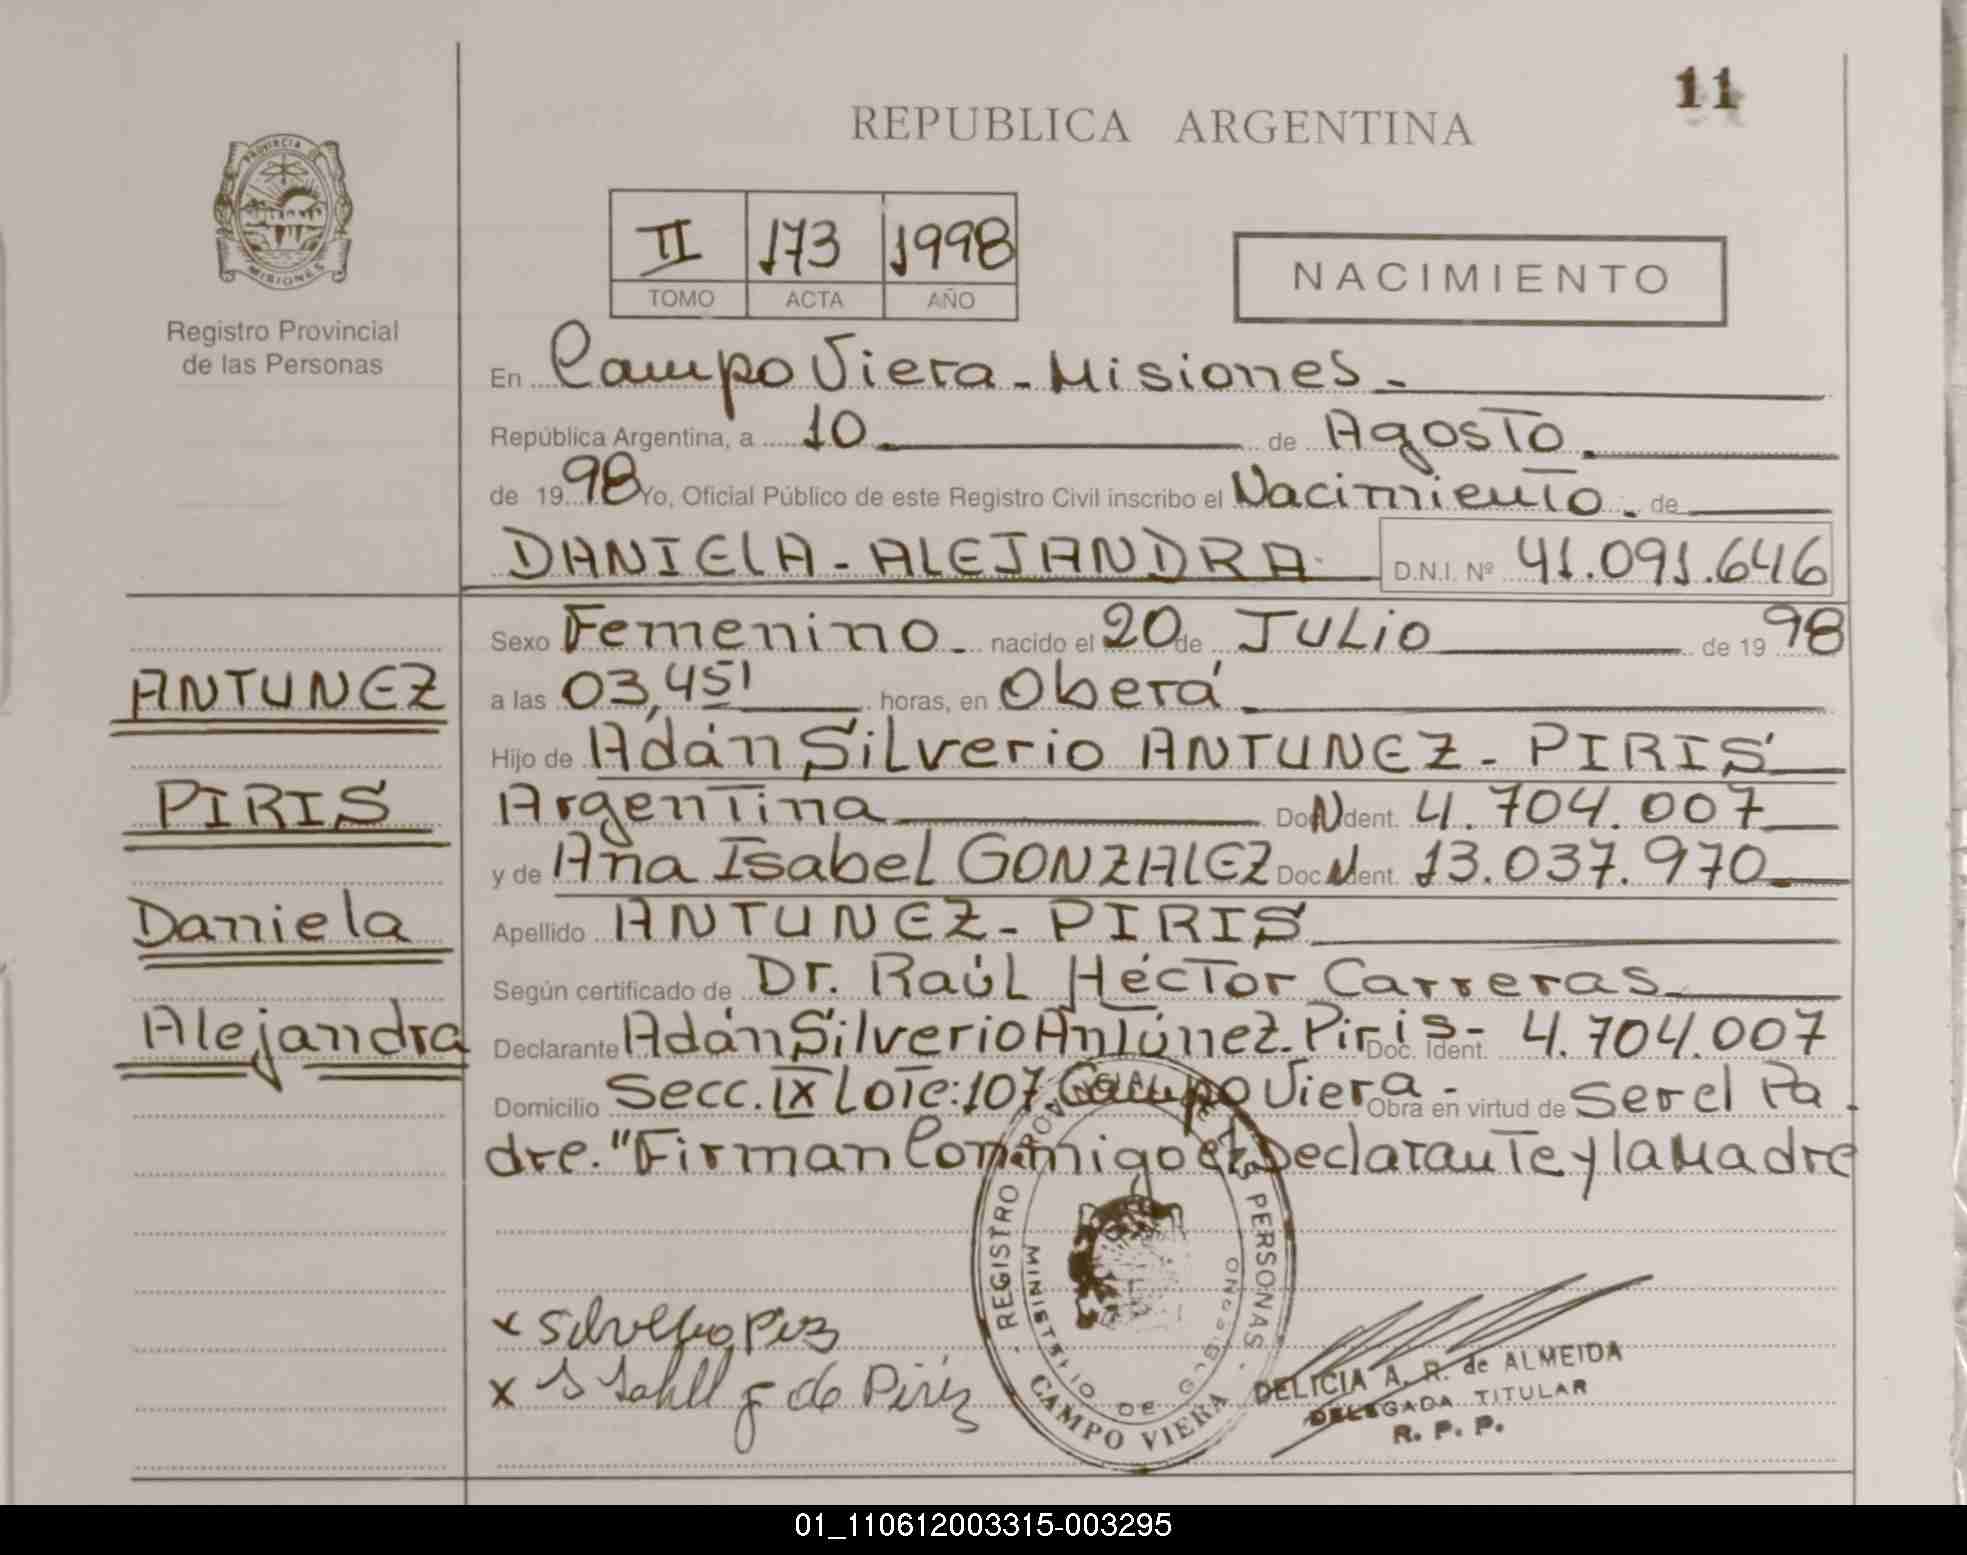 11
REPUBLICA ARGENTINA
PROVINCIA DE
MISIONES
Registro Provincial
de las Personas
II 173 1998
TOMO ACTA AÑO
NACIMIENTO
En Campo Viera - Misiones -
República Argentina, a 10 de Agosto
de 1998 Yo, Oficial Público de este Registro Civil inscribo el Nacimiento. de
DANIELA - ALEJANDRA D.N.I. Nº 41.091.646
Sexo Femenino nacido el 20 de JULIO de 1998
ANTUNEZ
a las 03,45' horas, en Oberá
Hijo de Adán Silverio ANTUNEZ - PIRIS
PIRIS
Argentina Doc. Ident. 4.704.007
y de Ana Isabel GONZALEZ Doc. Ident. 13.037.970
Daniela
Apellido ANTUNEZ - PIRIS
Según certificado de Dr. Raúl Héctor Carreras
Alejandra
Declarante Adán Silverio Antúnez - Piris - Doc. Ident. 4.704.007
Domicilio Secc. IX Lote: 107 Campo Viera - Obra en virtud de Ser el Pa
dre. "Firman Conmigo el Declarante y la Madre
REGISTRO PROVINCIAL DE LAS PERSONAS
MINISTERIO DE GOBIERNO
CAMPO VIERA
x
x de Piriz
DELICIA A. R. de ALMEIDA
DELEGADA TITULAR
R. P. P.
01_110612003315-003295